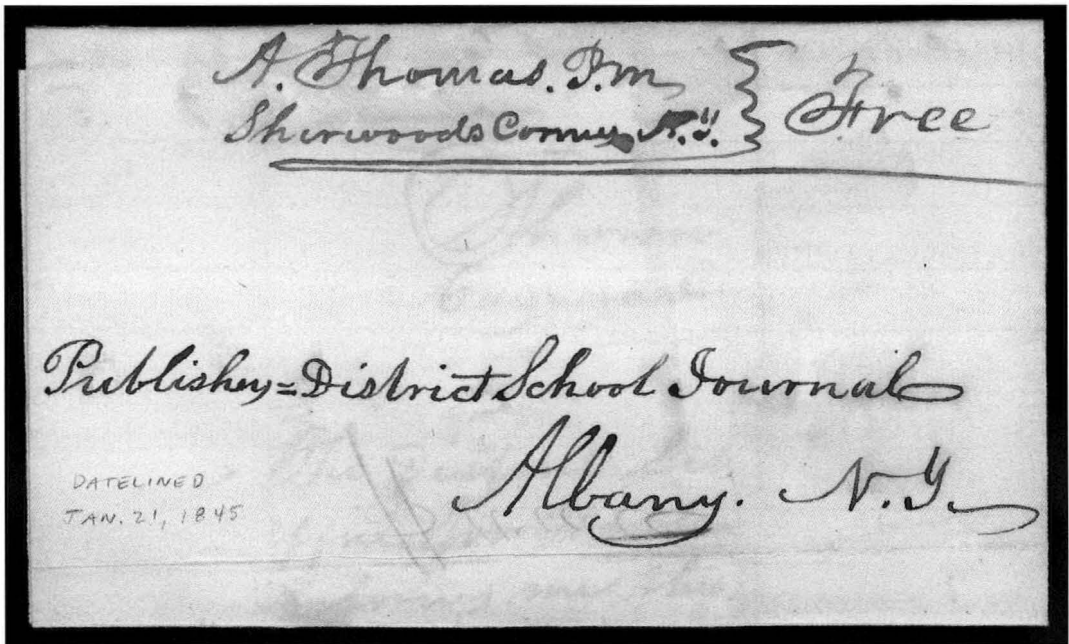 A. Thomas. P.m
Sherwoods Corners N.Y. } Free
Publisher = District School Journal
Albany. N.Y.
DATELINED
JAN. 21, 1845